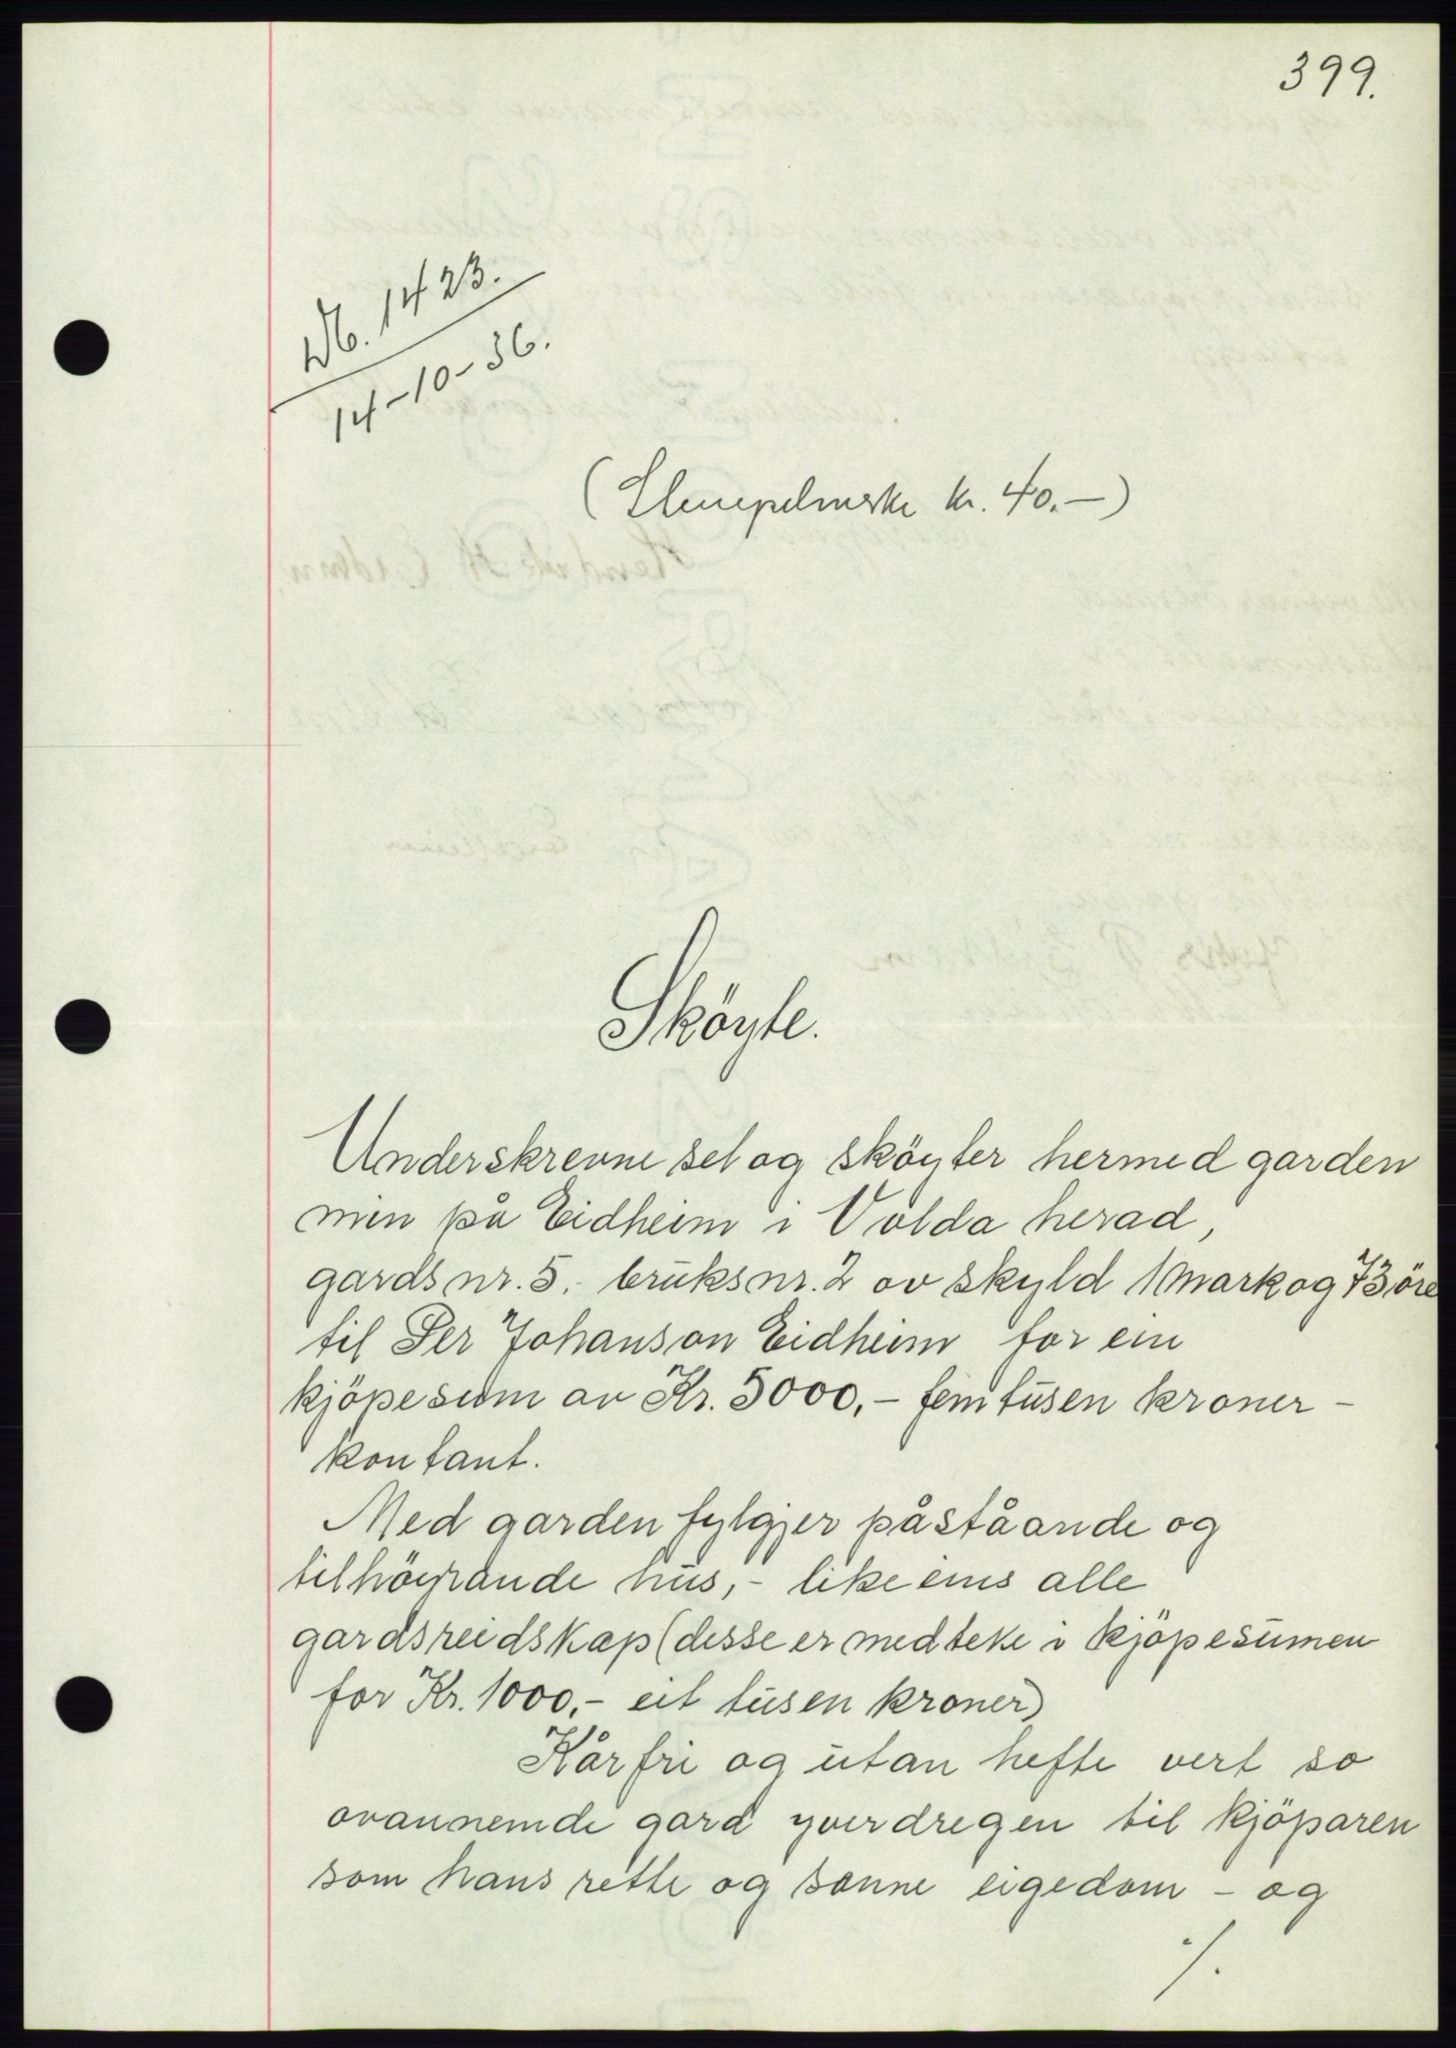 399.
Db. 1423.
14-10-36.
(Stempelmerke kr. 40.-)
Sköyte.
Underskrevne sel og sköyter hermed garden
min på Eidheim i Volda herad,
gards nr. 5. bruks nr. 2 ov skyld 1 mark og 73 öre
til Per Johanson Eidheim for ein
kjöpesum av Kr. 5000,- femtusen kroner -
kontant.
Med garden fylgjer påståande og
tilhöyrande hus, - like eins alle
gardsreidskap (desse er medteke i kjöpesumen
for Kr. 1000,- eit tusen kroner)
Kårfri og utan hefte vert so
ovannemde gard yverdregen til kjöparen
som hans rette og sanne eigedom - og
./.